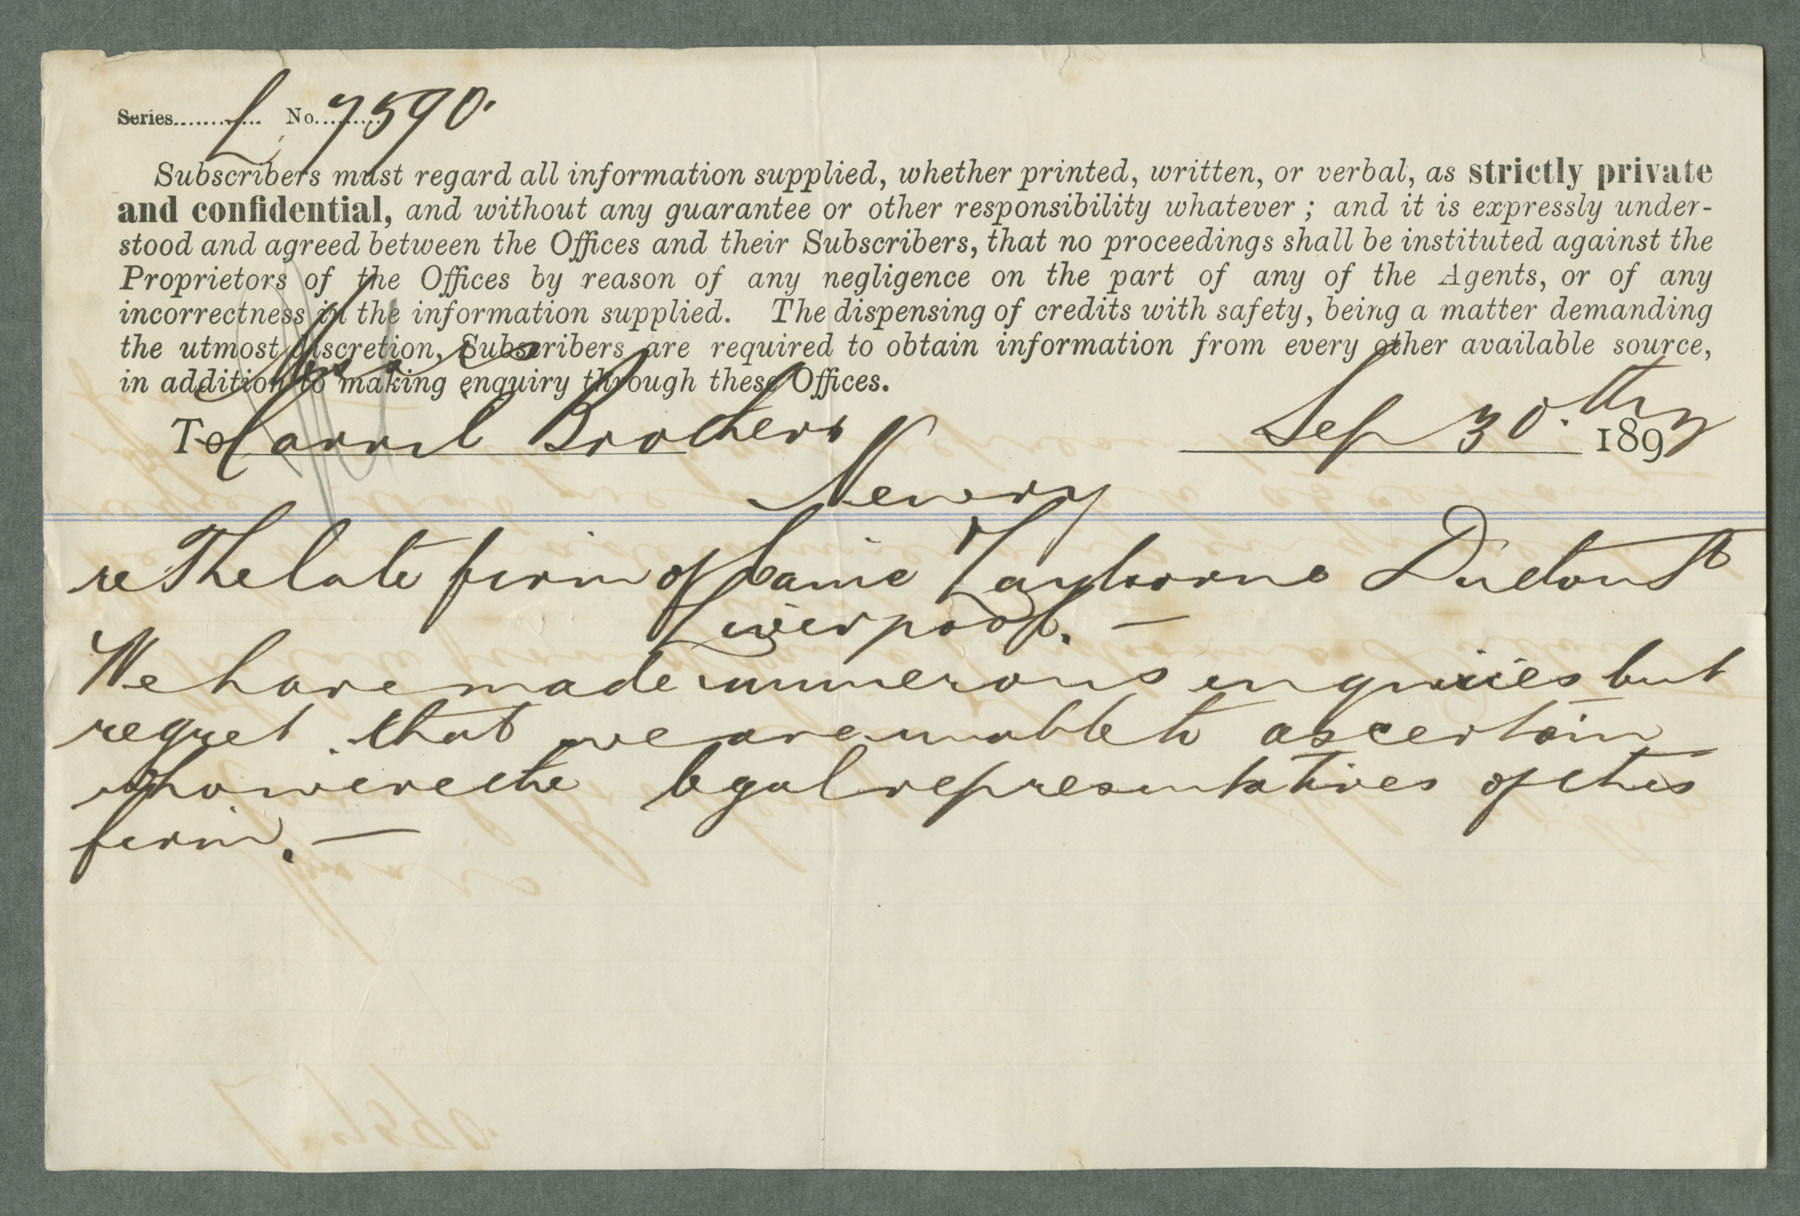 Series........... L No. 7590.
Subscribers must regard all information supplied, whether printed, written, or verbal, as strictly private
and confidential, and without any guarantee or other responsibility whatever ; and it is expressly under-
stood and agreed between the Offices and their Subscribers, that no proceedings shall be instituted against the
Proprietors of the Offices by reason of any negligence on the part of any of the Agents, or of any
incorrectness in the information supplied. The dispensing of credits with safety, being a matter demanding
the utmost discretion, Subscribers are required to obtain information from every other available source,
in addition to making enquiry through these Offices.
Messrs
To Carvil Brothers Sep 30th 1893
Newry
re The late firm of Dutton St
Liverpool. —
We have made numerous inquiries but
regret that we are unable to ascertain
who were the legal representatives of this
firm. —